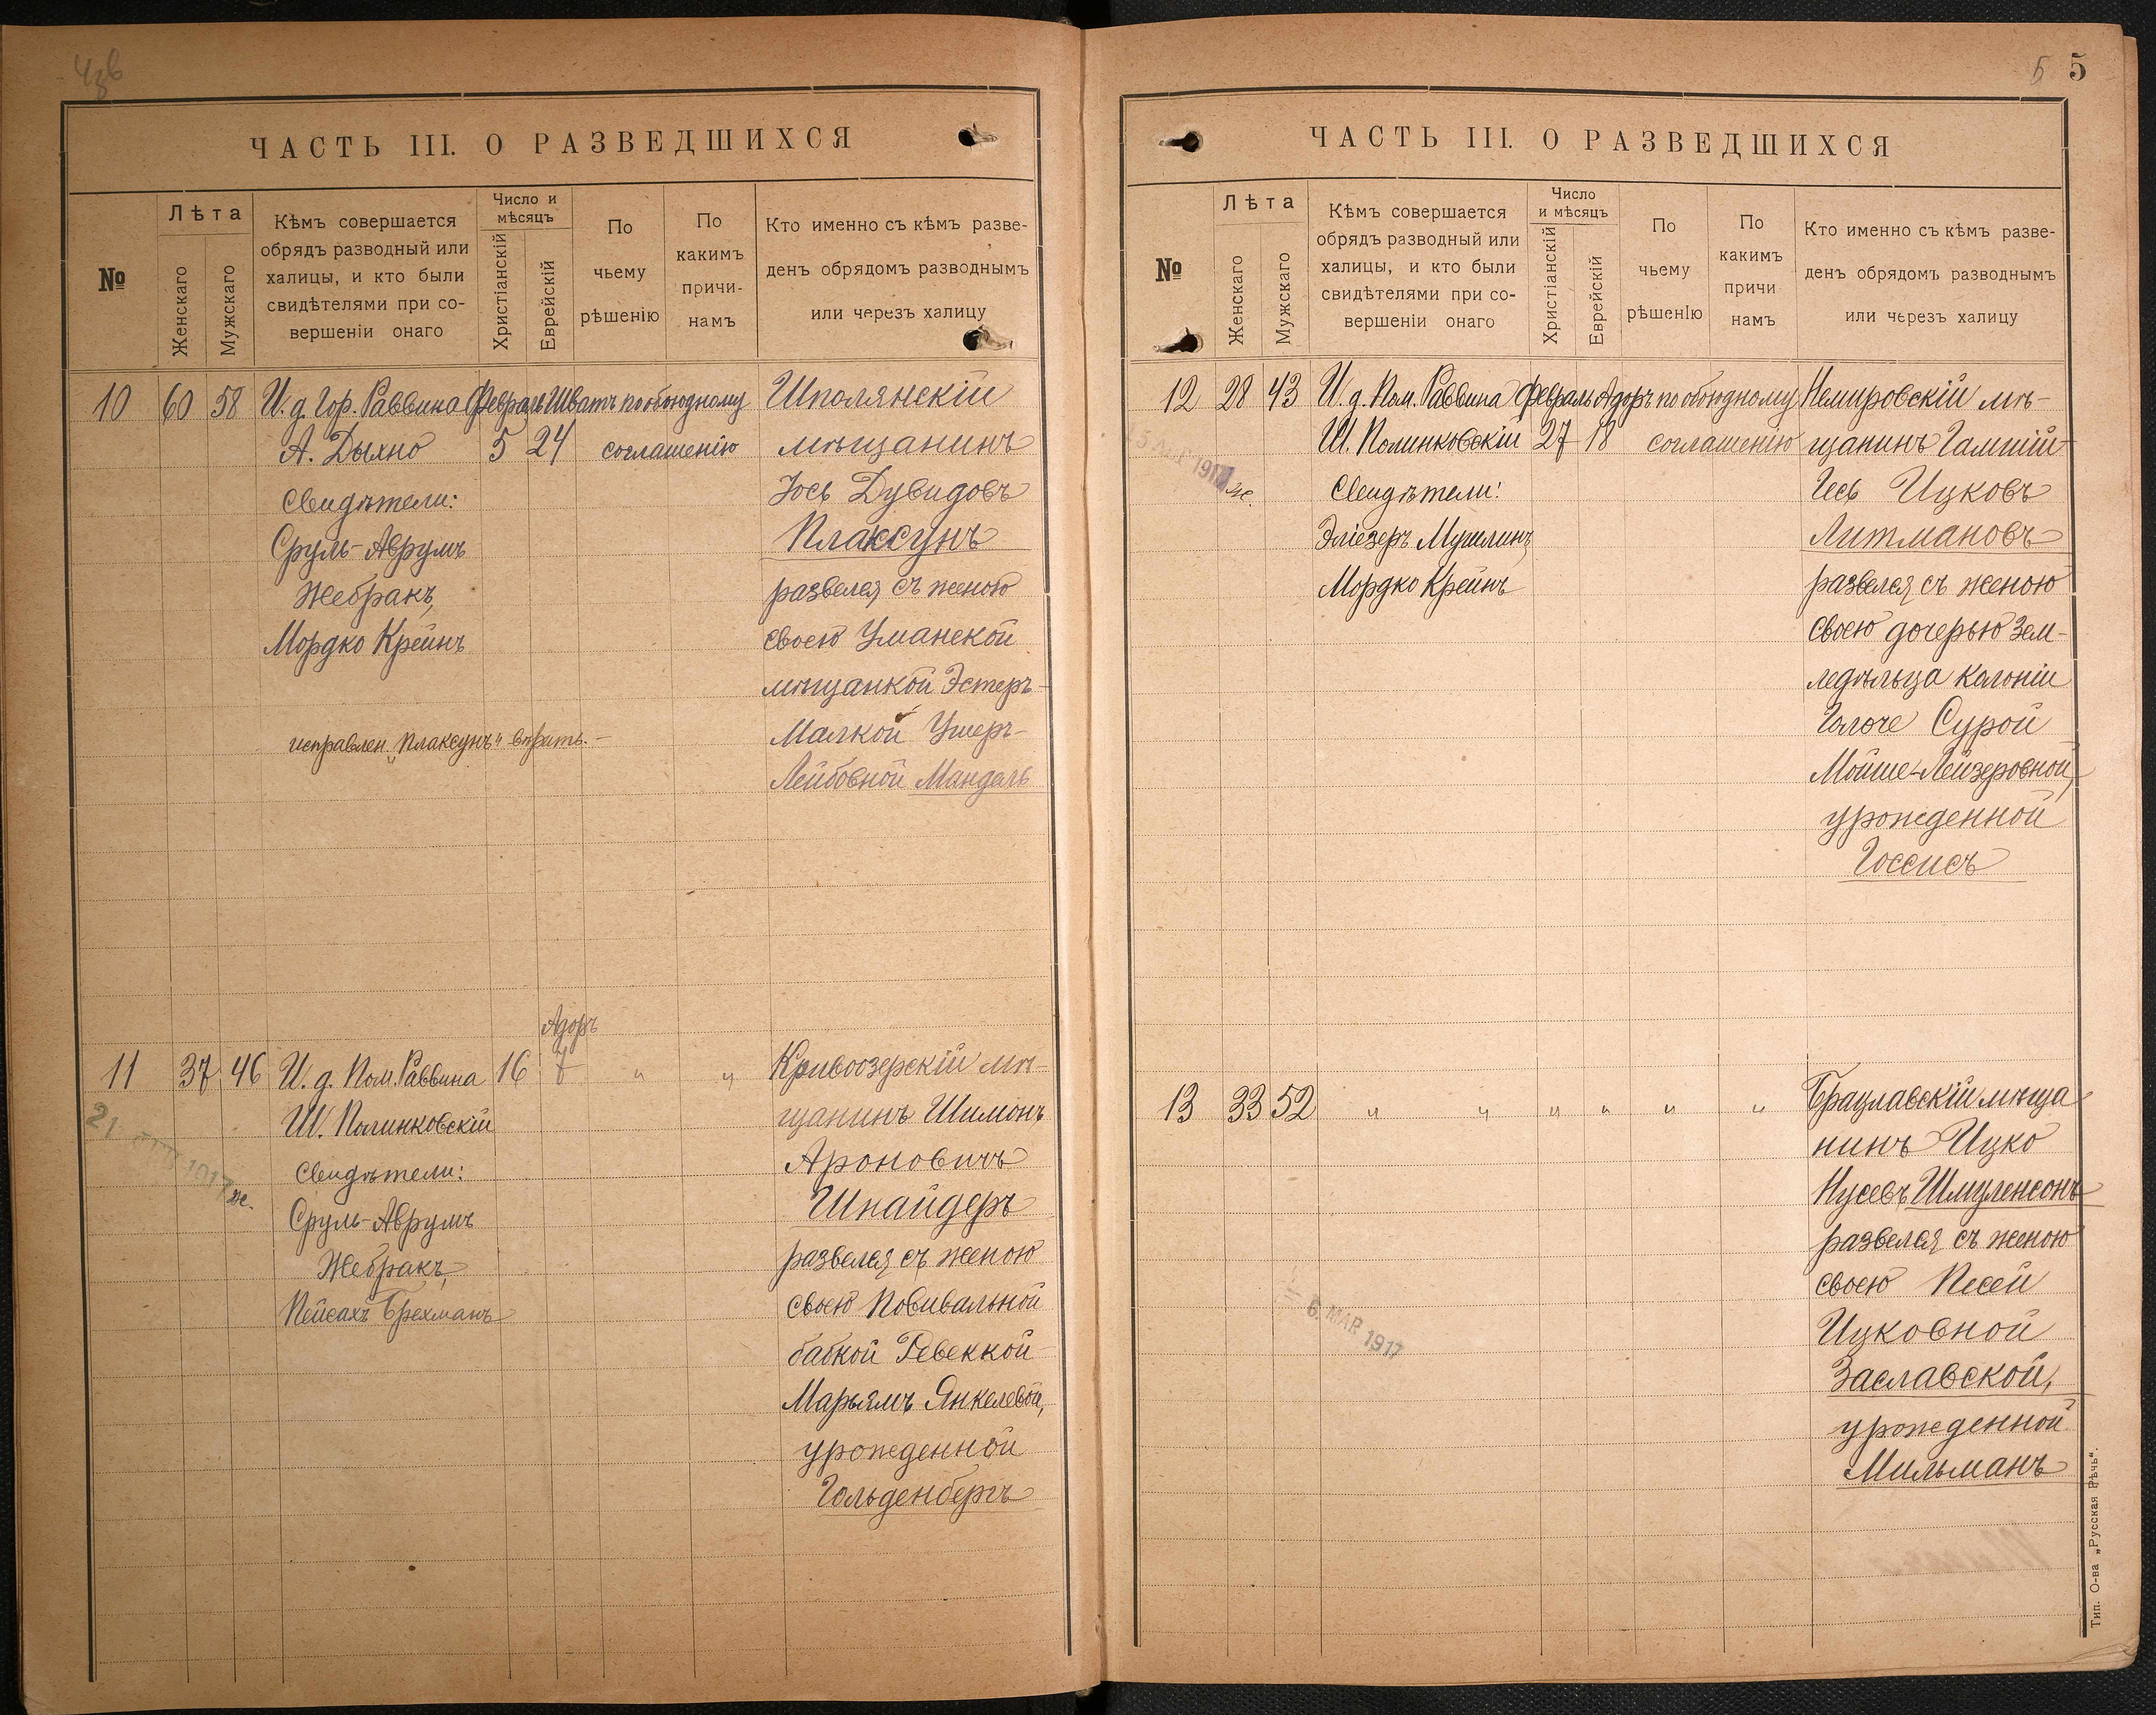 ЧАСТЬ III. О РАЗВЕДШИХСЯ
№
Лѣта
Женскаго
Мужскаго
Кѣмъ совершается
обрядъ разводный или
халицы, и кто были
свидѣтелями при со-
вершеніи онаго
Число и
мѣсяцъ
Христіанскій
Еврейскій
По
чьему
рѣшенію
По
какимъ
причи-
намъ
Кто именно съ кѣмъ разве-
денъ обрядомъ разводнымъ
или черезъ халицу
10 60 58 И. д. Гор. Раввина Февраль Шватъ по обоюдному Шполянскій
А. Дыхно 5 24 соглашенію мѣщанинъ
Свидѣтели: Іось Дувидовъ
Сруль-Аврумъ Плаксунъ
Жебракъ, развелся съ женою
Мордко Крейнъ своею Уманской
мѣщанкой Эстеръ-
исправлен. „Плаксунъ" вѣрить.- Малкой Ушеръ-
Лейбовной Мандель
Адоръ
11 37 46 И. д. Пом. Раввина 16 7 " " Кривоозерскій мѣ-
Ш. Полинковскій щанинъ Шимонъ
21 1917 ж.
Свидѣтели: Ароновичъ
Сруль-Аврумъ Шнайдеръ
Жебракъ, развелся съ женою
Пейсахъ Брехманъ своею Повивальной
бабкой Ревеккой-
Марьямъ Янкелевой,
урожденной
Гольденбергъ
5 5
ЧАСТЬ III. О РАЗВЕДШИХСЯ
№
Лѣта
Женскаго
Мужскаго
Кѣмъ совершается
обрядъ разводный или
халицы, и кто были
свидѣтелями при со-
вершеніи онаго
Число
и мѣсяцъ
Христіанскій
Еврейскій
По
чьему
рѣшенІю
По
какимъ
причи
намъ
Кто именно съ кѣмъ разве-
денъ обрядомъ разводнымъ
или черезъ халицу
12 28 43 И. д. Пом. Раввина Февраль Адоръ по обоюдному Немировскій мѣ-
Ш. Полинковскій 27 18 соглашенію щанинъ
1917 ж.
Свидѣтели: Ицковъ
Эліезеръ Литмановъ
Мордко Крейнъ развелся съ женою
своею дочерью зем-
ледѣльца колоніи
Сурой
Мойше-Лейзеровной,
урожденной
Госсисъ
13 33 52 " " " " " " Брацлавскій мѣща
нинъ Ицко
Нусевъ Шмуленсонъ
развелся съ женою
6. MAR 1917
своею Песей
Ицковной
Заславской,
урожденной
Мильманъ
Тип. О-ва „Русская Рѣчь".